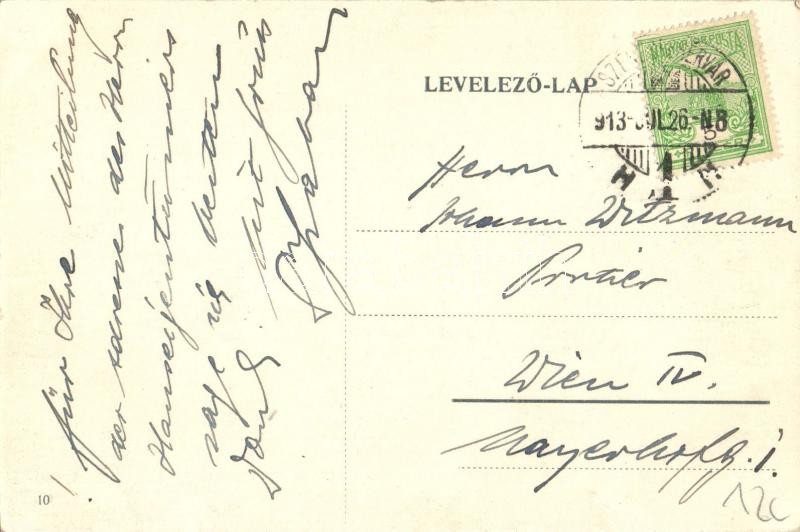 für Ihre Mitteilung
der Adresse des Herrn
Hauseigentümers
sage ich besten
Dank. Mit Gruß
LEVELEZŐ-LAP
MAGYAR KIR. POSTA
913 JUL 26 N8
1
Herrn
Johann Witzmann
Portier
Wien IV.
Mayerhofg. 1.
10
12c